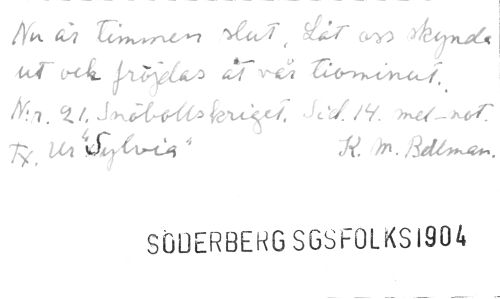 Nu är timmen slut, Låt oss skynda
ut och fröjdas åt vår tiominut.
N:r. 21. Snöbollskriget. Sid. 14. mel-not.
Tx. Ur "Sylvia" K. M. Bellman.
SÖDERBERG SGSFOLKS1904